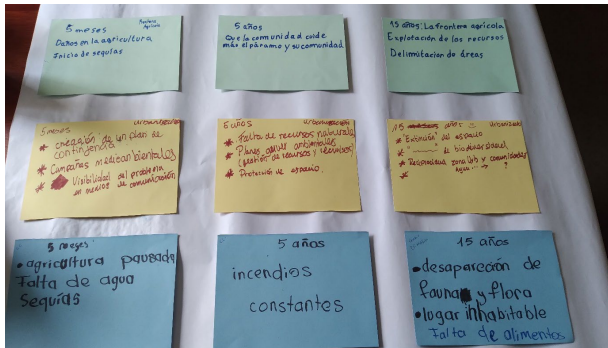 5 meses
Frontera
Agrícola
Daños en la agricultura
Inicio de sequías
5 años
Que la comunidad cuide
más el páramo y su comunidad
15 años: La frontera agrícola
Explotación de los recursos
Delimitacion de áreas
5 meses
* creación de un plan de
contingencia
* Campañas medioambientales
* Visibilidad del problema
en medios de comunicación
5 años
* Falta de recursos naturales
* Planes
(gestión de recursos y
* Protección de espacio.
15 años
* "Extinción" del espacio
* de biodiversidad
*
5 meses
• agricultura pausada
Falta de agua
Sequías
5 años
incendios
constantes
15 años
• desaparección de
fauna y flora
• lugar inhabitable
Falta de alimentos